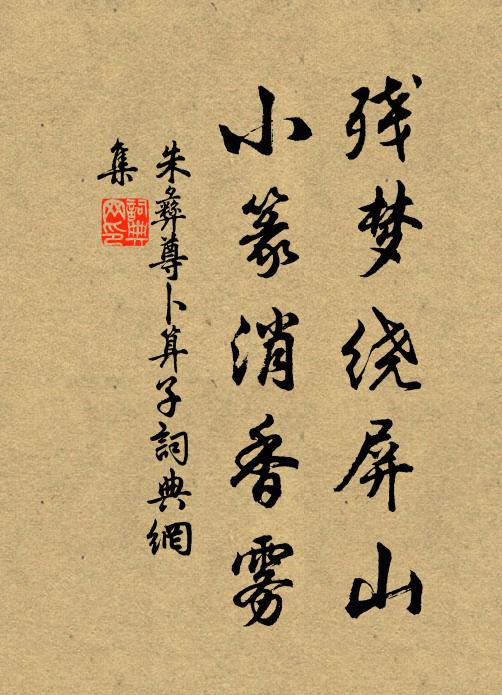 残梦绕屏山
小篆消香雾
朱彝尊卜算子詞典網
集
詞典网印